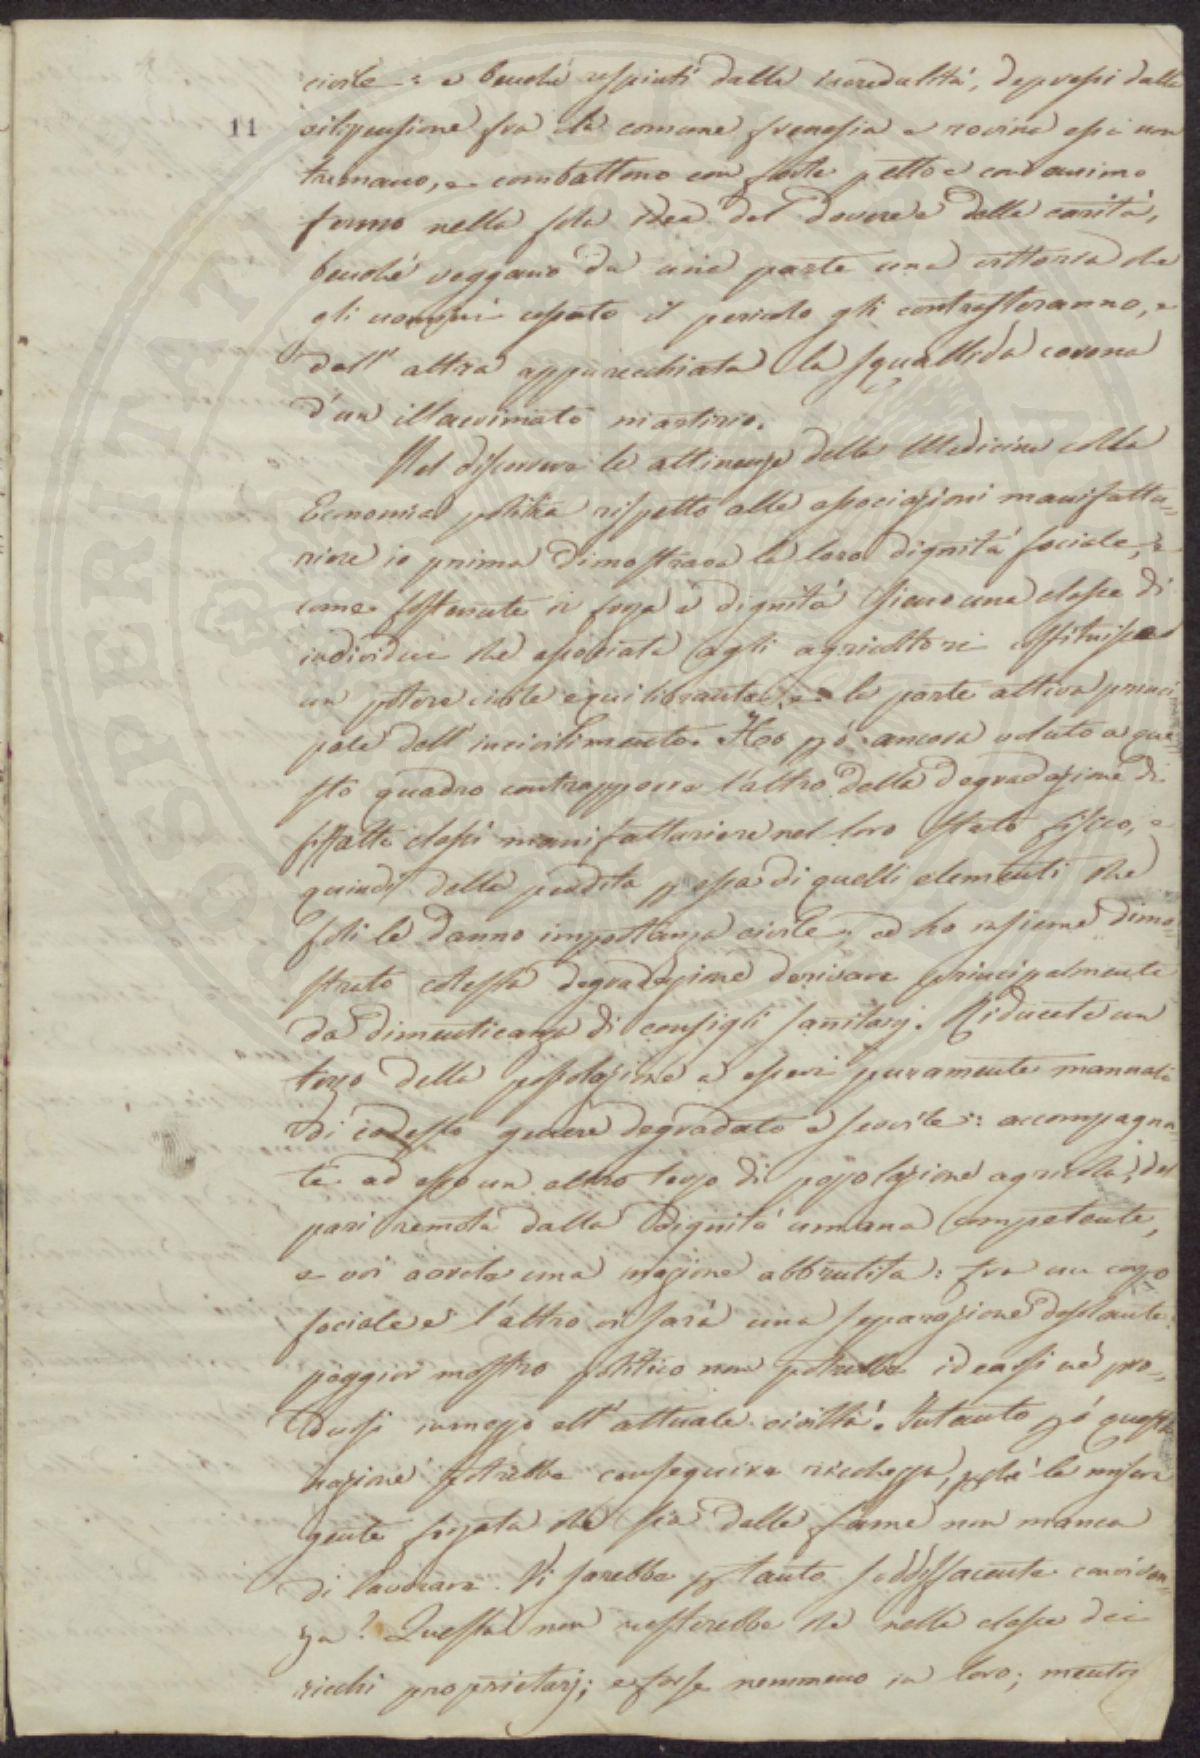 civile: e benché respinti dalla incredulità, depressi dalla
11 vilipensione fra la comune frenesia e rovina essi non
tremano, e combattono con forte petto e con animo
fermo nella sola idea del dovere e della carità,
benché veggano da una parte una vittoria che
gli uomini cessato il pericolo gli contrasteranno, e
dall'altra apparecchiata la squallida corona
d'un illacrimato martirio.
Nel discorrere le attinenze della Medicina colla
Economia politica rispetto alle associazioni manifattu-
riere io prima dimostrava la loro dignità sociale, e
come sostenute in forza e dignità sieno una classe di
individui che associata agli agricoltori costituisce
un potere civile equilibrante, e la parte attiva princi
pale dell'incivilimento. Ho pò ancora voluto a que-
sto quadro contrapporre l'altro della degradazione di
sffatte classi manifatturiere nel loro stato fisico, e
quindi della perdita p essa di quelli elementi che
soli le danno importanza civile, ed ho insieme dimo-
strato cotesta degradazione derivare principalmente
da dimenticanza di consigli sanitarj. Riducete un
terzo della popolazione a esseri puramente manuali
di codesto genere degradato e servile: accompagna-
te ad esso un altro terzo di popolazione agricola, del
pari remota dalla dignità umana competente,
e voi avrete una nazione abbrutita: fra un capo
sociale e l'altro vi sarà una separazione desolante:
peggior mostro politico non potrebbe idearsi né pro-
dursi in mezzo all'attuale civiltà. Intanto pò questa
nazione potrebbe conseguire ricchezza, pchè la misera
gente forzata che sia dalla fame non manca
di lavorare. Vi sarebbe p tanto soddisfacente conviven-
za? Questa non resterebbe che nella classe dei
ricchi proprietarj; e forse nemmeno in loro; mentre